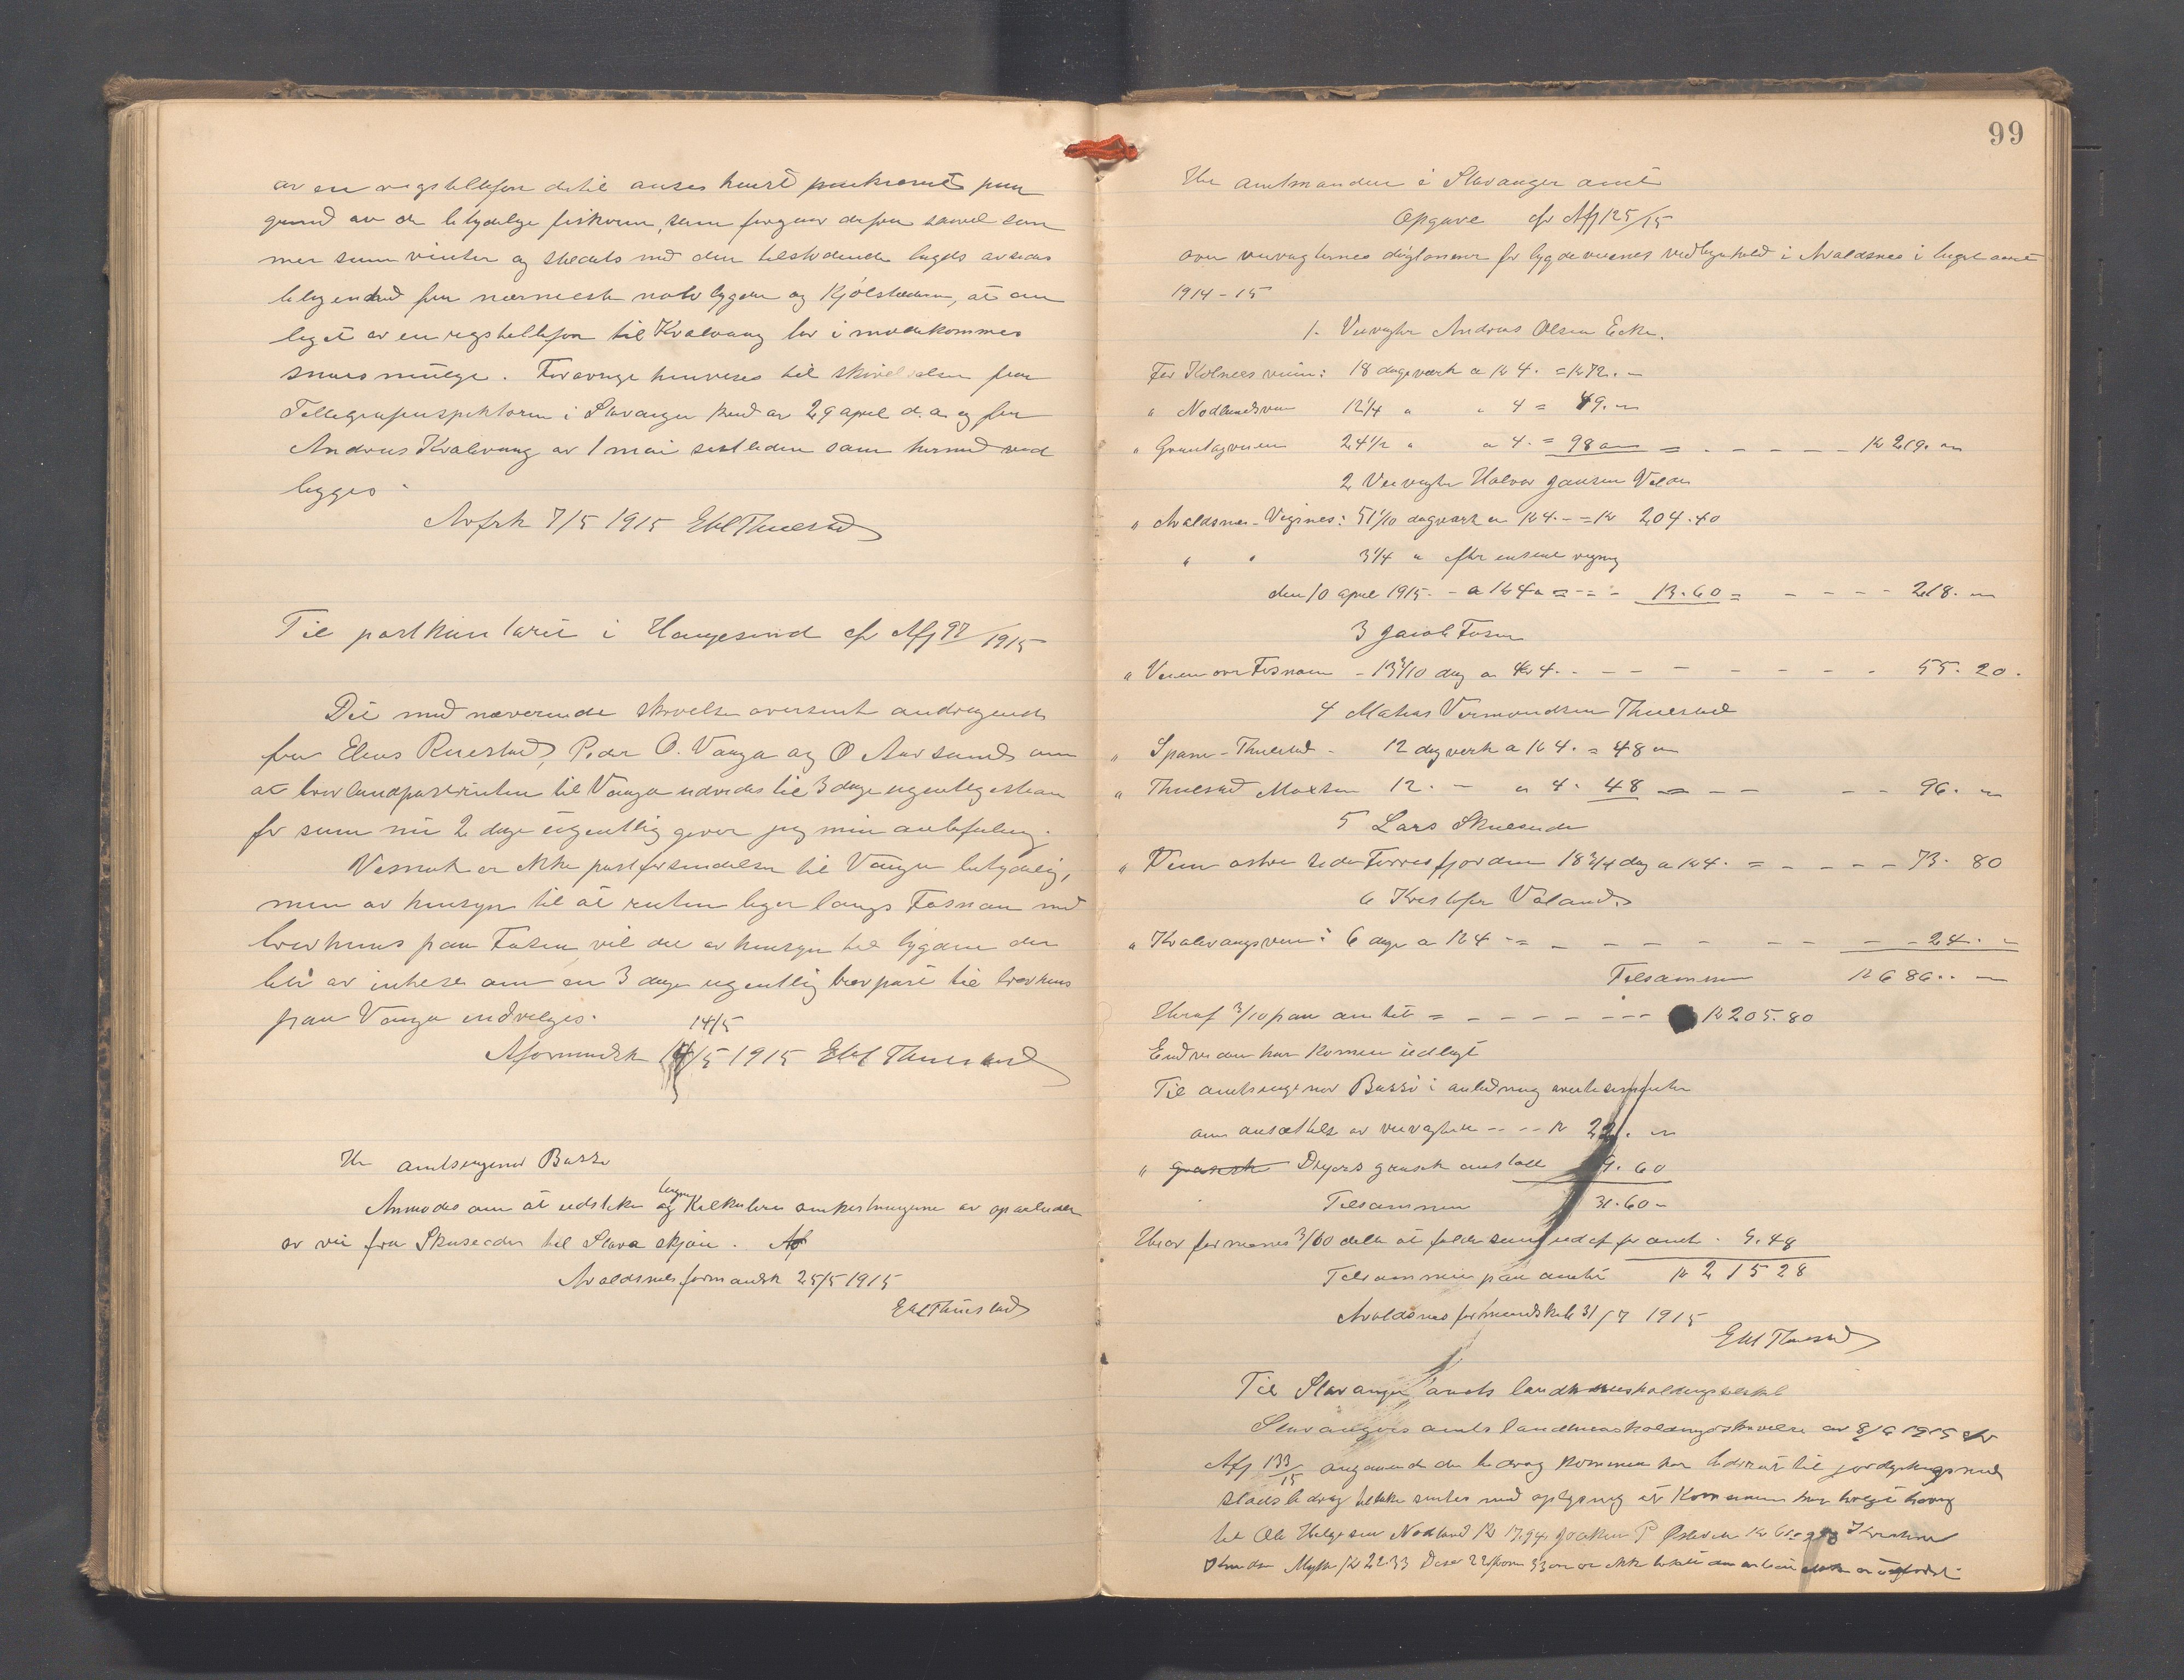 av en rigstellefon dertil anses høist paakrævet paa
grund av de betydelige fiskerier, som foregaar derfra saavel som
mer som vinter og stedets med den tilstødende bygds avsides
beliggenhed fra nærmeste nabobygder og Kjøbstæderne, at an
lægget av en rigstellefon til Kvalvaag bør imødekommes
snares mulige. Forøvrige henvises til skrivelser fra
Tellegrafinspektøren i Stavanger av 29 april d.a. og fra
Andreas Kvalevaag av 1 mai sistleden som hermed ved
lægges.
Avfsk 7/5 1915 Thuestad
Til postkontoret i Haugesund cfr Afj 97/1915
Det med nærværende skrivelse oversendt andragende
fra Elias Ruestad, Peder O. Vaaga og O Aarsand om
at brevlandpostruten til Vaaga udvides til 3 dage ugentlig istean
for som nu 2 dage ugentlig giver jeg min anbefaling.
Vesnok er ikke postforsendelsen til Vaaga betydelig,
men av hensyn til at ruten liger langs Fosnaa med
brevhuus paa Fosen vil det av hensyn til bygden der
bli av intrese om en 3 dages ugentlig brevpost til brevhuus
paa Vaaga indvilges.
14/5
Aformandsk 14/5 1915 Thuestad
Hr amtsingeniør Basso
bygn
Anmodes om at udstikke og Kalkulere omkostningerne av oparbeidelse
av vei fra Skuseidet til Stava skjøn.
Avaldsnes formandsk 25/5 1915
Thuestad
99
Hr amtmanden i Stavanger amt
Opgave cfr Afj 125/15
over veivogternes døglønner for bygdeveienes vedligehold i Avaldsnes i
1914-15
1. Veivogter Andreas Olsen Eike.
For Kolnesveien: 18 dageværk a kr 4. = kr 72.
" Nodlandsveien 12 1/4 " " 4 = 49.
" 24 1/2 " a 4. = 98 = - - - - kr 219.
2 Veivogter Halvor Jansen Velde
" Avaldsnes - Viginæs: 51 1/10 dagværk a kr 4. - = kr 204.40
" " 3 1/4 " efter
den 10 april 1915. - a kr 4 = 13.60 = - - - - 218.
3 Jacob Fosen
" Veien over Fosnaen - 13 8/10 dag a kr 4. - - - - - - 55.20.
4 Matias Vermundsen Thuestad
" Spanne - Thuestad - 12 dagverk a kr 4. = 48
" Thuestad 12. - a 4. 48 = - - - - 96.
5 Lars Skuseide
" Veien østre side Førresfjorden 18 3/4 dag a kr 4. = - - - - 73.80
6 Kristofer Våland
" Kvalevaagsveien: 6 dage a kr 4 = - - - - - - - 24.
Tilsammen kr 686.
Heraf 3/10 paa amtet = - - - - - - kr 205.80
Endvidere har Komunen udlagt
Til amtsingeniør Basso i anledning
om ansættelse av veivogtere - - - kr 22.
" Dreyers grafisk anstalt 9.60
Tilsammen 31.60
Herav formenes 3/10 dele at falde som udg for amtet. 9.48
Tilsammen paa amtet kr 215 28
Avaldsnes formandskab 31/7 1915
Thuestad
Til Stavanger amts landhuusholdingsselskab
Stavangers amts landhuusholdingsskrivelse av 8/6 1915 cfr
Afj 133/15 angaaende de bidrag Kommunen har bidraget til jorddyrkning med
statsbidrag sendes med oplysning at Komunen har
til Ole Helgesen Nodland kr 17,94, P
kr 22.33 Disse 22 kroner 33 øre er ikke